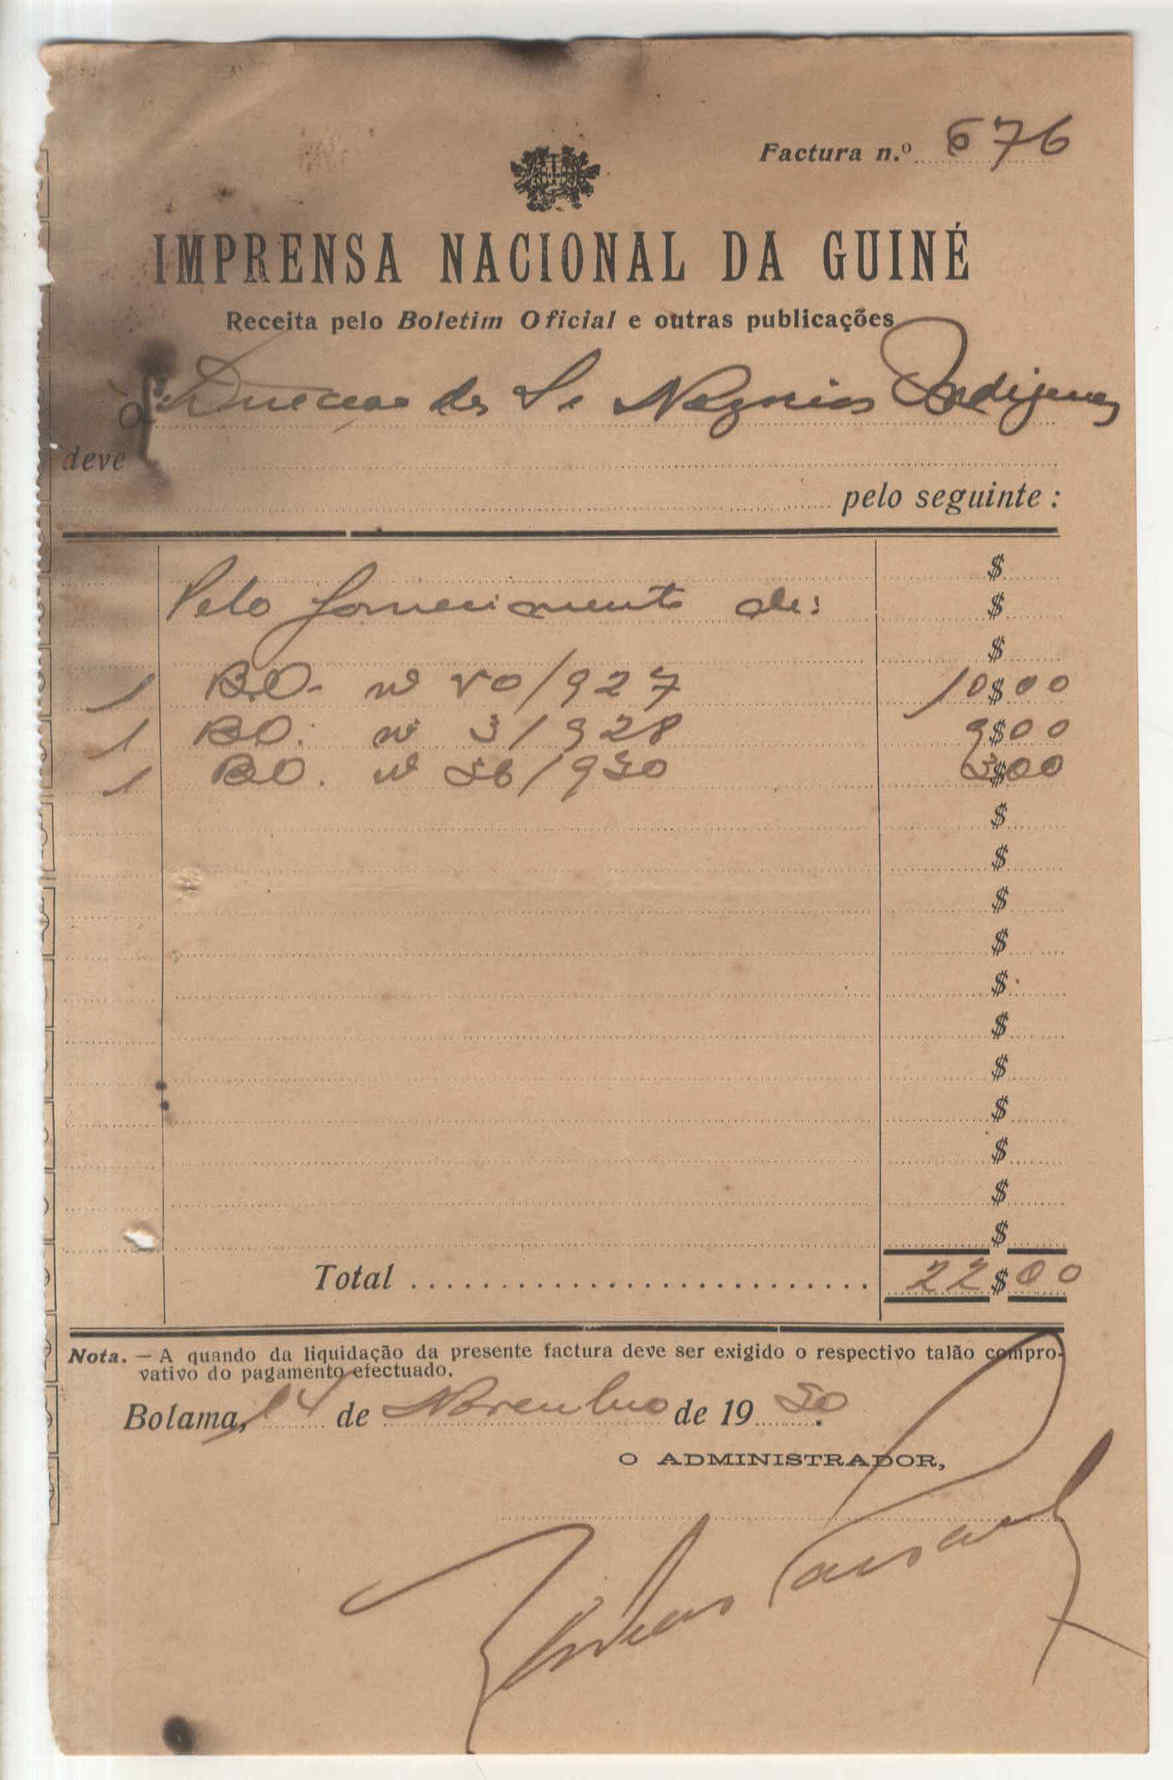 Factura n.º 676
IMPRENSA NACIONAL DA GUINÉ
Receita pelo Boletim Oficial e outras publicações
A Direcção dos S. Negocios Indigenas
deve
pelo seguinte :
$
Pelo fornecimento de: $
$
1 B.O. nº 50/927 10$00
1 BO. nº 3/928 9$00
1 BO. nº 36/930 3$00
$
$
$
$
$
$
$
$
$
$
$
Total 22$00
Nota. — A quando da liquidação da presente factura deve ser exigido o respectivo talão compro-
vativo do pagamento efectuado.
Bolama, 14 de Novembro de 1930.
O ADMINISTRADOR,